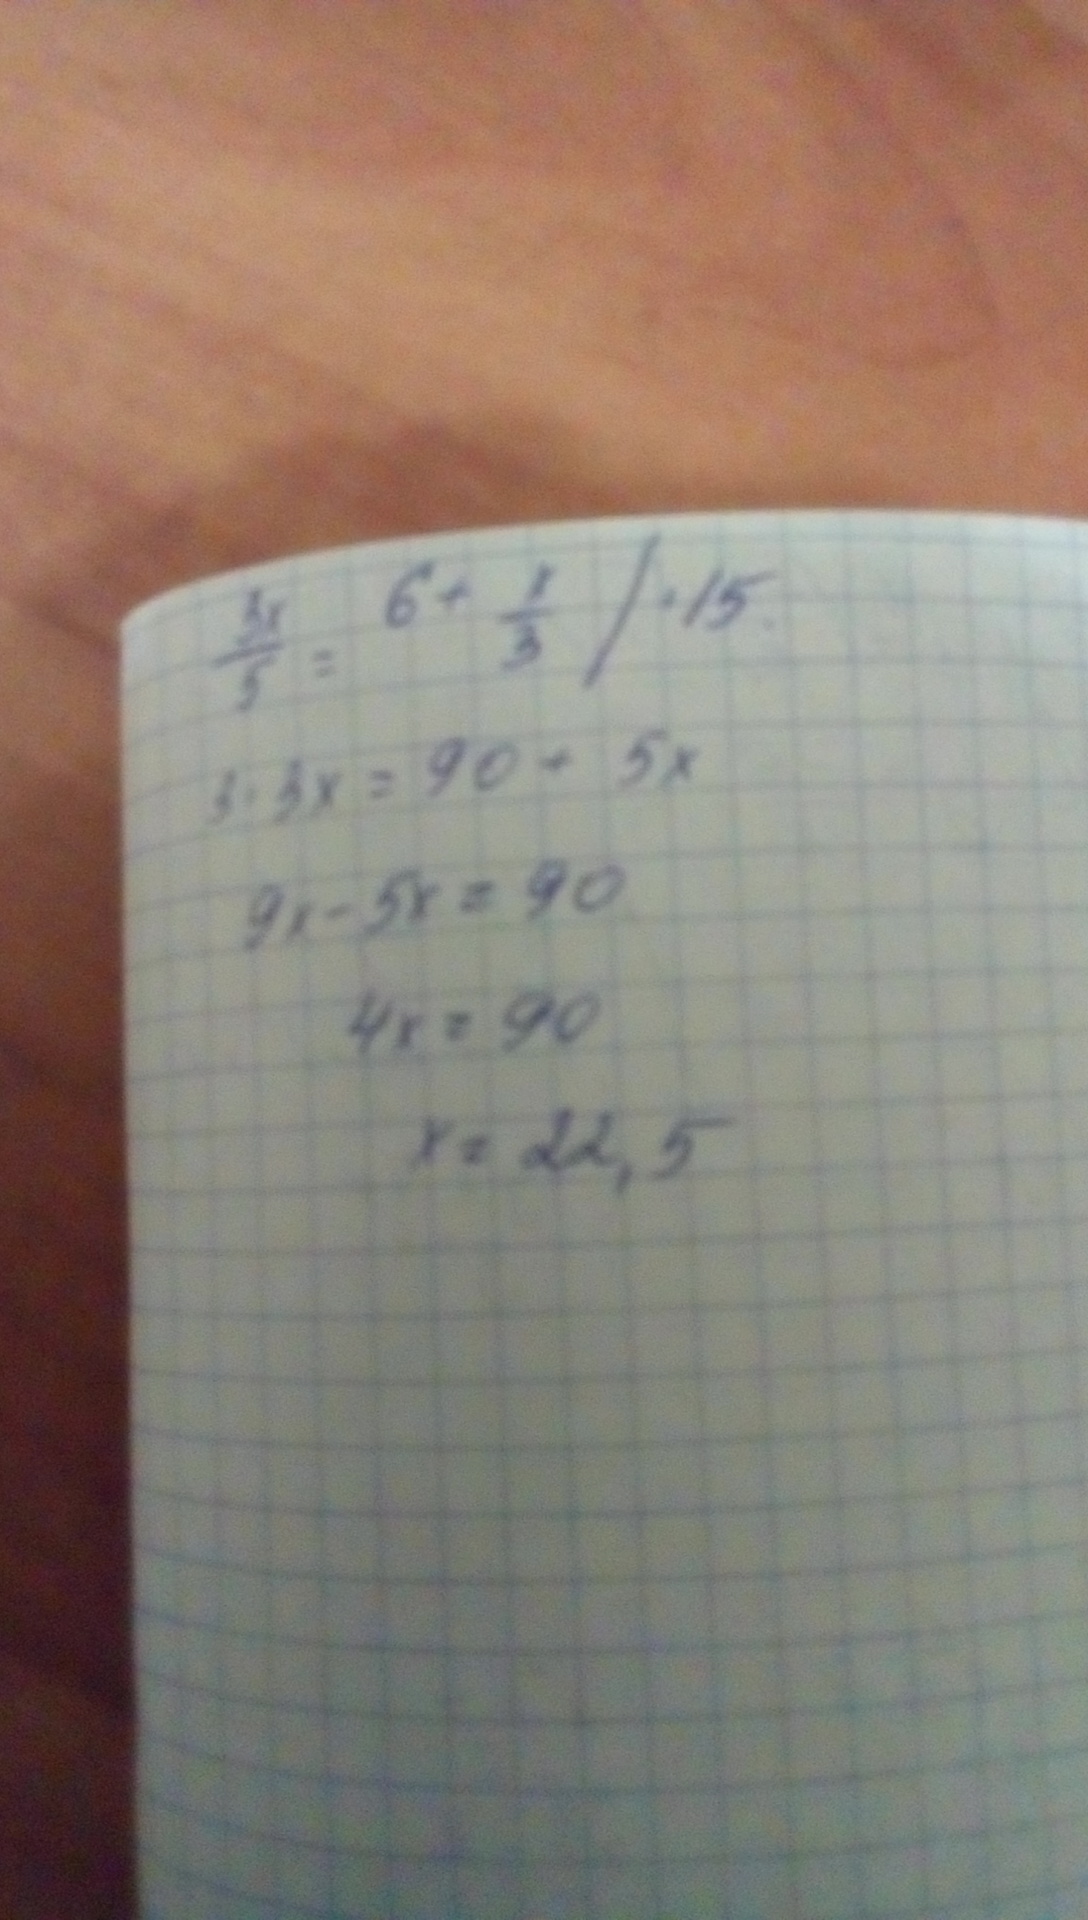 3x/5 = 6 + x/3 / · 15
3 · 3x = 90 + 5x
9x - 5x = 90
4x = 90
x = 22,5